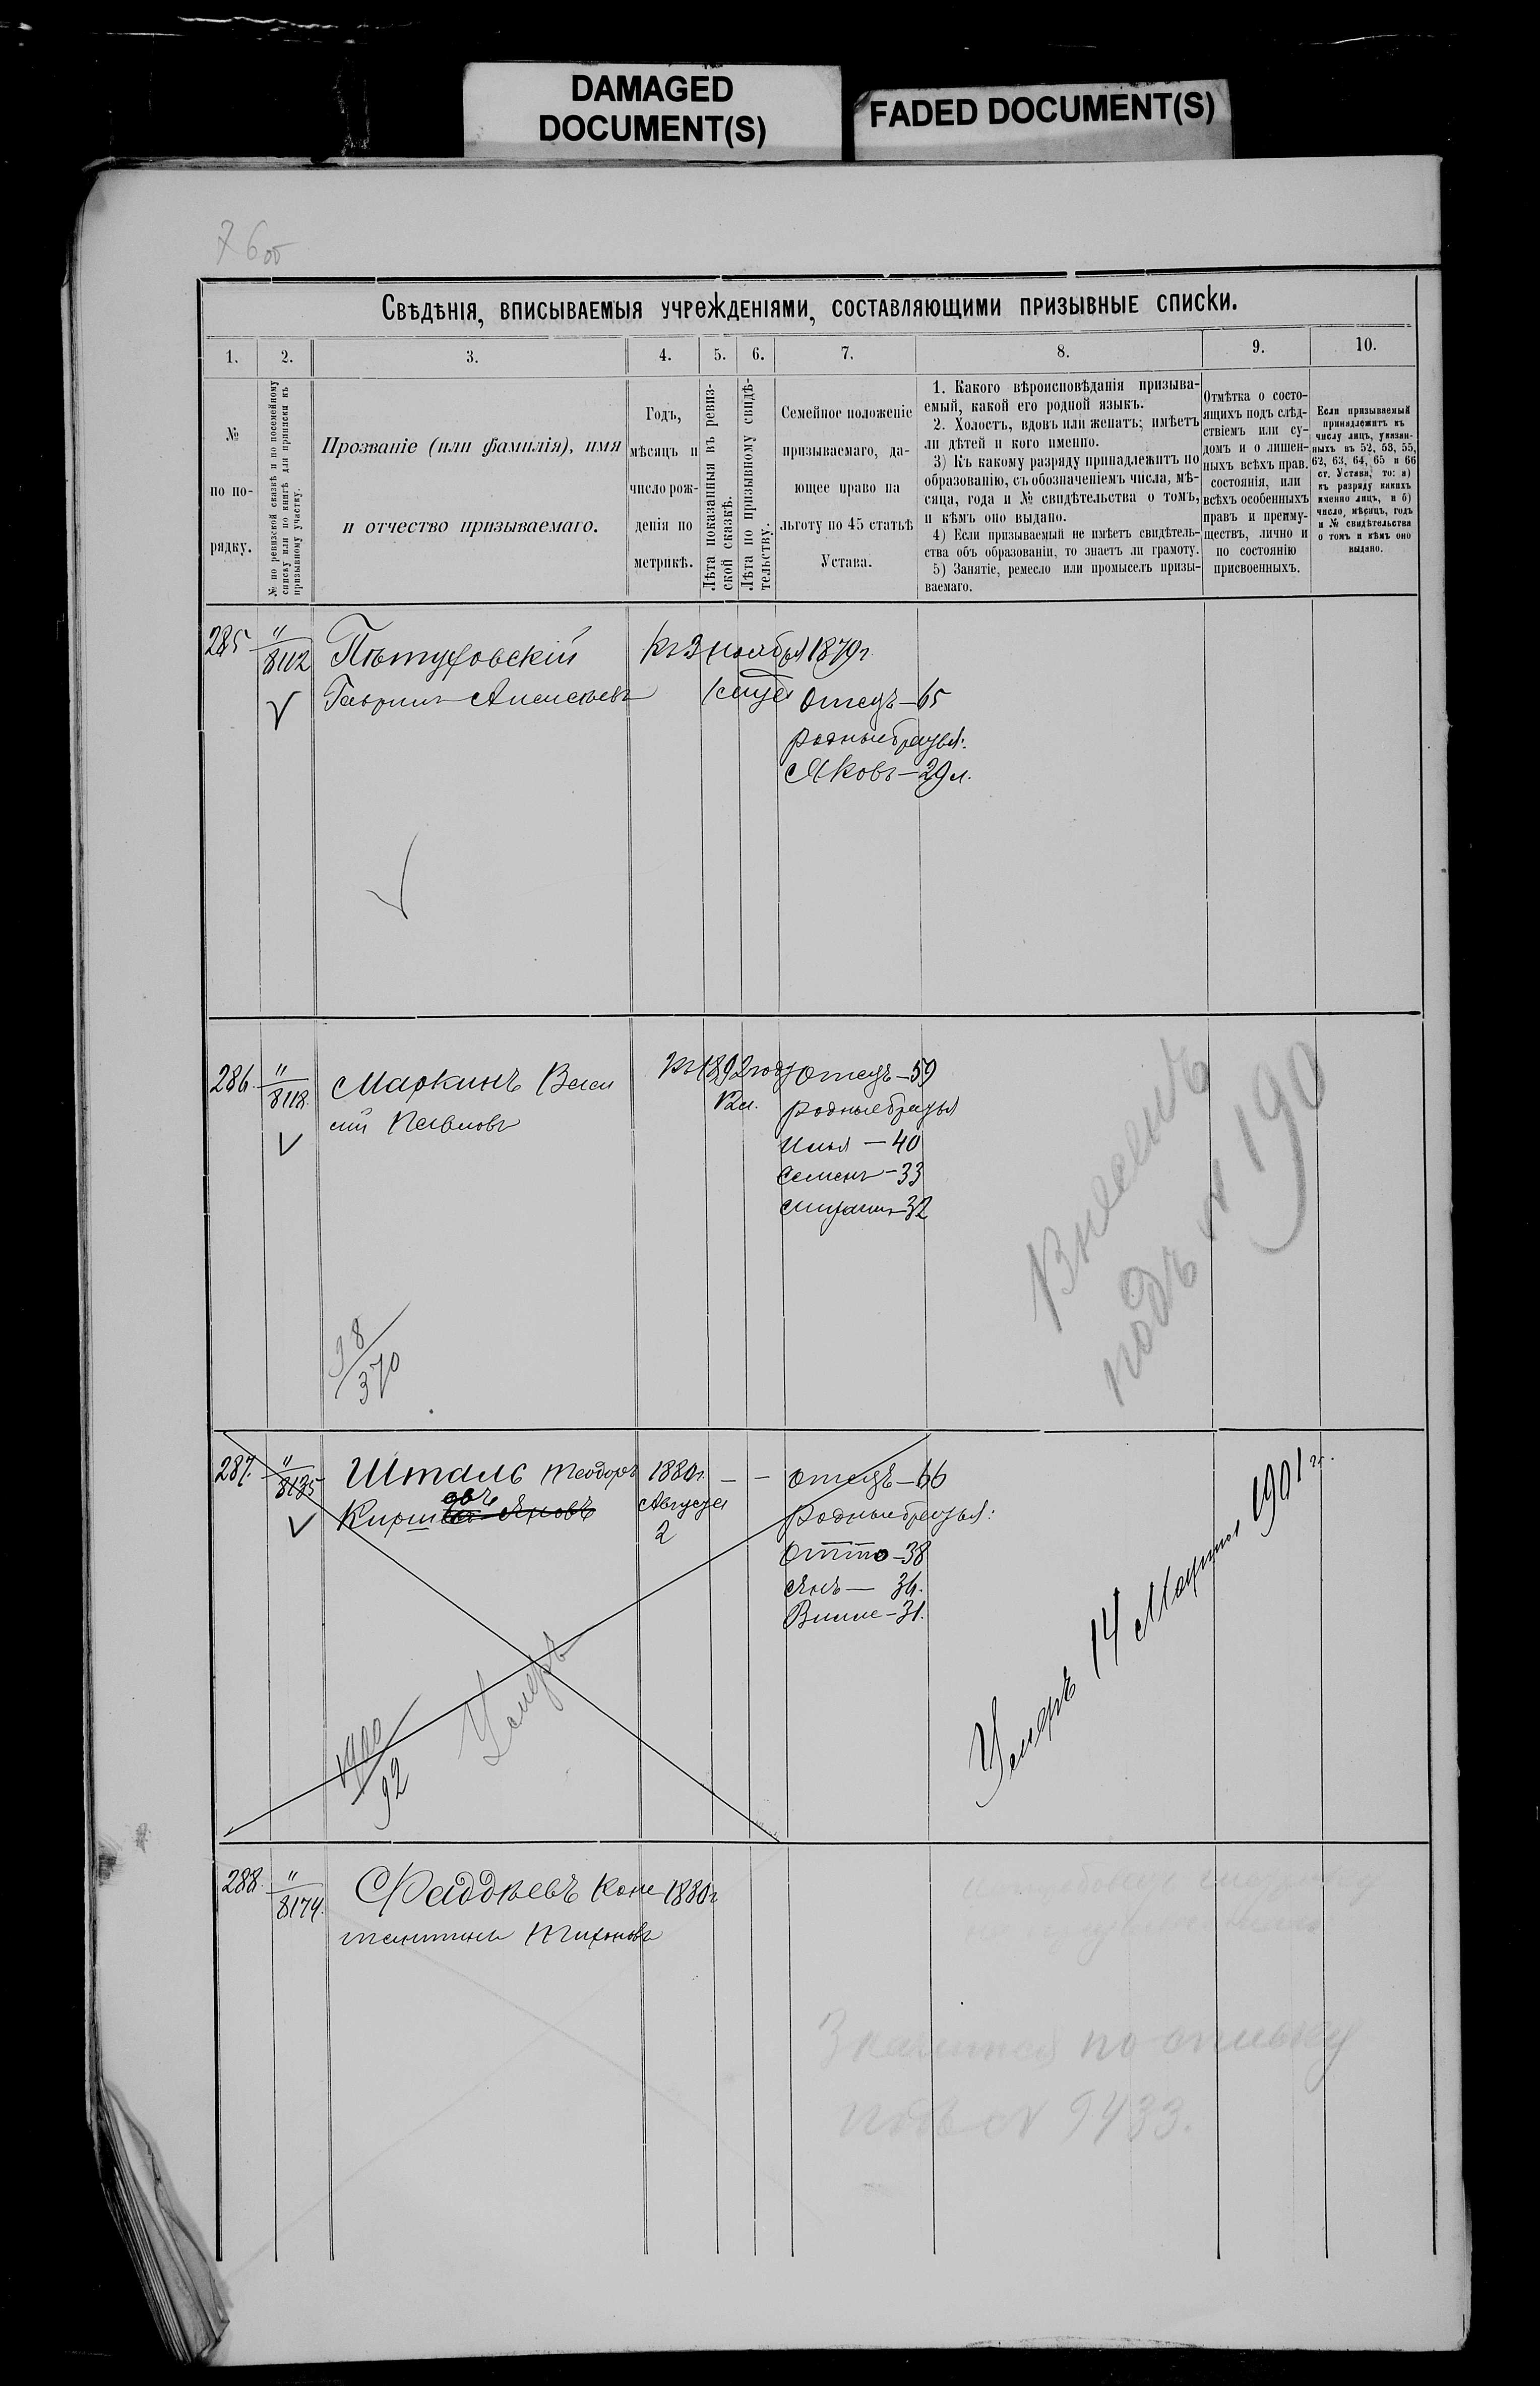 DAMAGED
DOCUMENT(S)
FADED DOCUMENT(S)
76 об
Свѣдѣнія, вписываемыя учрежденіями, составляющими призывные списки.
1. 2. 3. 4. 5. 6. 7. 8. 9. 10.
№
по по-
рядку.
№ по ревизской сказкѣ и по посемейному
списку или по книгѣ для приписки къ
призывному участку.
Прозваніе (или фамилія), имя
и отчество призываемаго.
Годъ,
мѣсяцъ и
число рож-
денія по
метрикѣ.
Лѣта показанныя въ ревиз-
ской сказкѣ.
Лѣта по призывному свидѣ-
тельству.
Семейное положеніе
призываемаго, да-
ющее право на
льготу по 45 статьѣ
Устава.
1. Какого вѣроисповѣданія призыва-
емый, какой его родной языкъ.
2. Холостъ, вдовъ или женатъ; имѣетъ
ли дѣтей и кого именно.
3) Къ какому разряду принадлежитъ по
образованію, съ обозначеніемъ числа, мѣ-
сяца, года и № свидѣтельства о томъ,
и кѣмъ оно выдано.
4) Если призываемый не имѣетъ свидѣтель-
ства объ образованіи, то знаетъ ли грамоту.
5) Занятіе, ремесло или промыселъ призы-
ваемаго.
Отмѣтка о состо-
ящихъ подъ слѣд-
ствіемъ или су-
домъ и о лишен-
ныхъ всѣхъ прав.
состоянія, или
всѣхъ особенныхъ
правъ и преиму-
ществъ, лично и
по состоянію
присвоенныхъ.
Если призываемый
принадлежитъ къ
числу лицъ, указан-
ныхъ въ 52, 53, 55,
62, 63, 64, 65 и 66
ст. Устава, то: а)
къ разряду какихъ
именно лицъ, и б)
число, мѣсяцъ, годъ
и № свидѣтельства
о томъ и кѣмъ оно
выдано.
285 " Пѣтуховскій къ 3 ноября 1879 г.
8112
Гаврилъ Алексѣевъ Отецъ — 65
родные братья:
Яковъ — 29 л.
286. " Маркинъ Васи къ 1892 году Отецъ — 59
8118. 12 л. родные братья
лій Павловъ
Илья — 40
Семенъ — 33
Михаилъ — 32
Внесенъ
подъ N 190
98
370
287. " Шталь Теодоръ 1880 г. — — отецъ — 66
8135 Августа родные братья:
Кирш овъ Яновъ 2
Отто — 38
Янъ — 36.
Вилле — 31.
Умеръ 14 Марта 1901 г.
Умеръ
1900
92
288. " Фаддѣевъ Конс 1880 г
8174.
тантинъ Тихоновъ
Значится по списку
подъ N 9433.